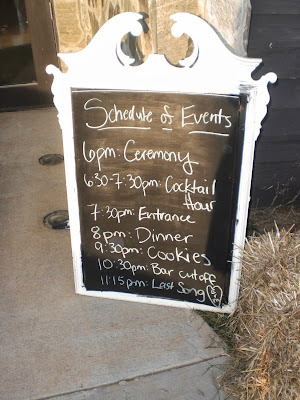 Schedule of Events
6pm: Ceremony
6:30-7:30pm: Cocktail
Hour
7:30pm: Entrance
8pm: Dinner
9:30pm: Cookies
10:30pm: Bar cutoff
11:15pm: Last Song